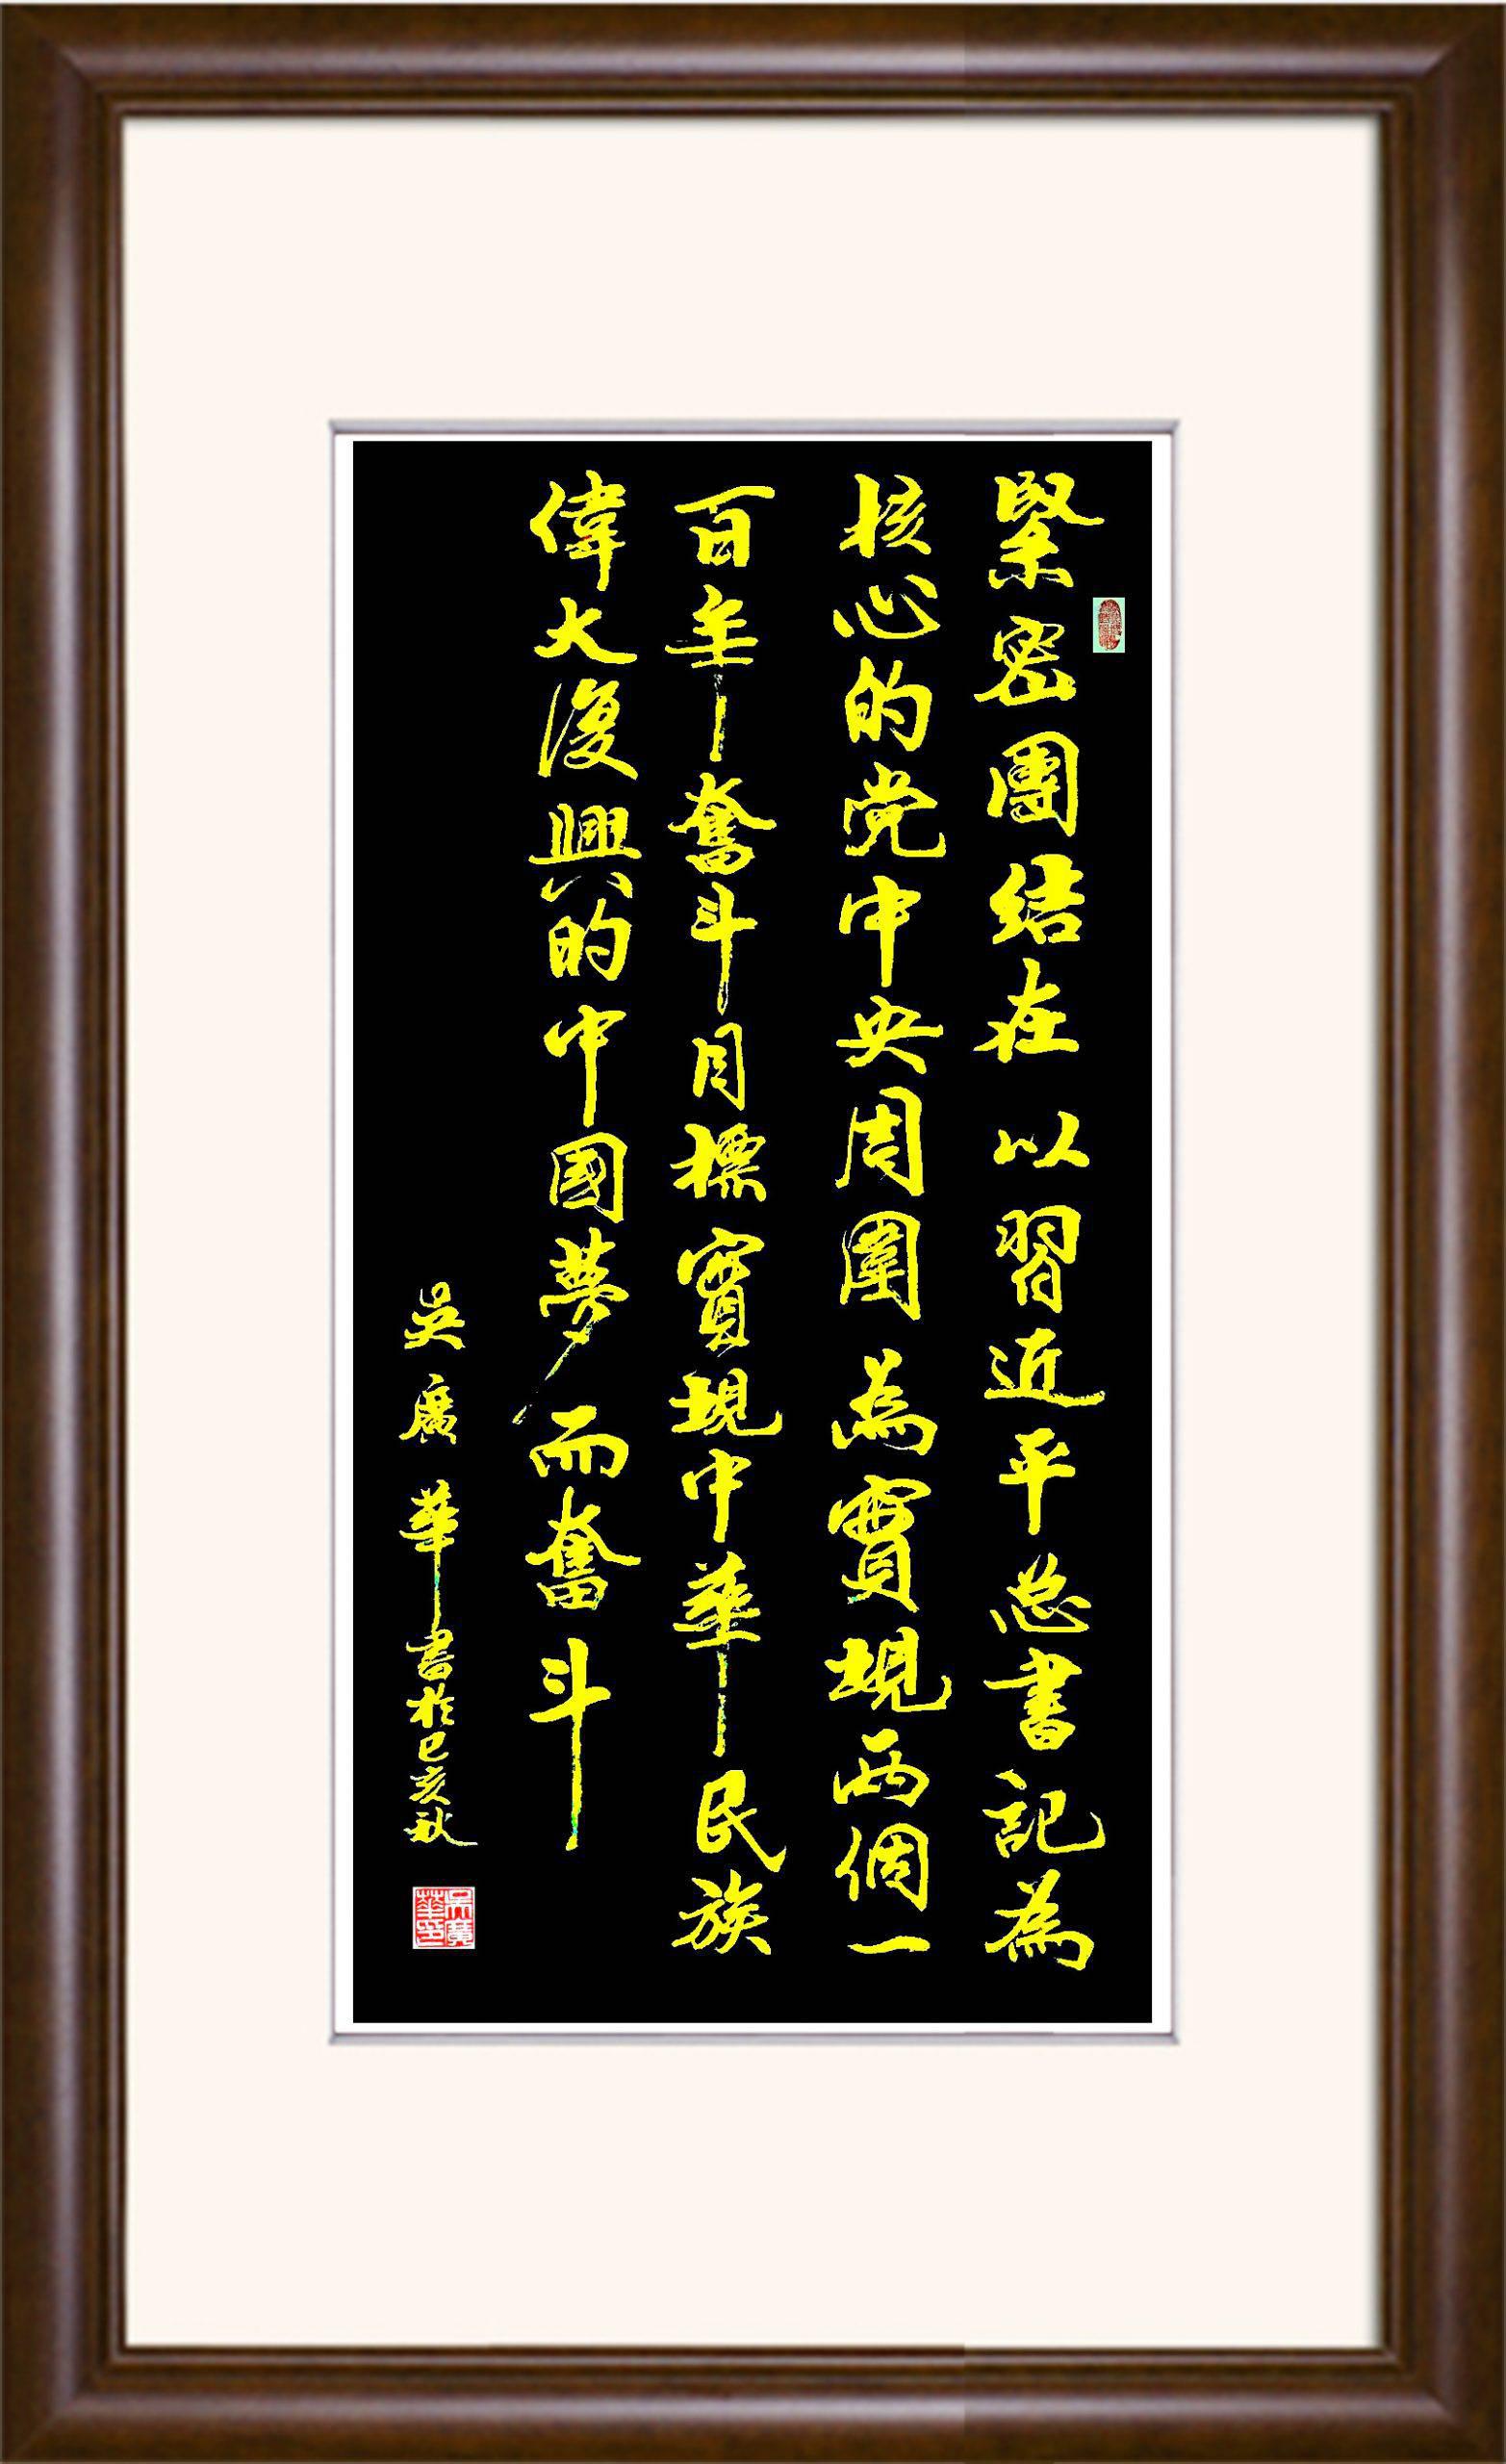 緊密團结在以習近平总書記為
核心的党中央周圍為實現两個一
百年奮斗目標實現中華民族
偉大復興的中國夢而奮斗
吴廣華書於己亥秋